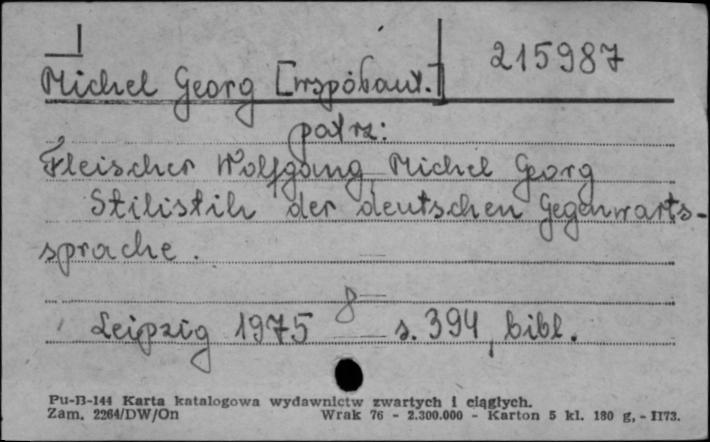 Michel Georg [współaut.] 215987
patrz:
Fleischer Wolfgang, Michel Georg
Stilistik der deutschen Gegenwarts-
sprache.
8
Leipzig 1975 s. 394, bibl.
Pu-B-144 Karta katalogowa wydawnictw zwartych i ciągłych.
Zam. 2264/DW/On Wrak 76 - 2.300.000 - Karton 5 kl. 180 g, - II73.